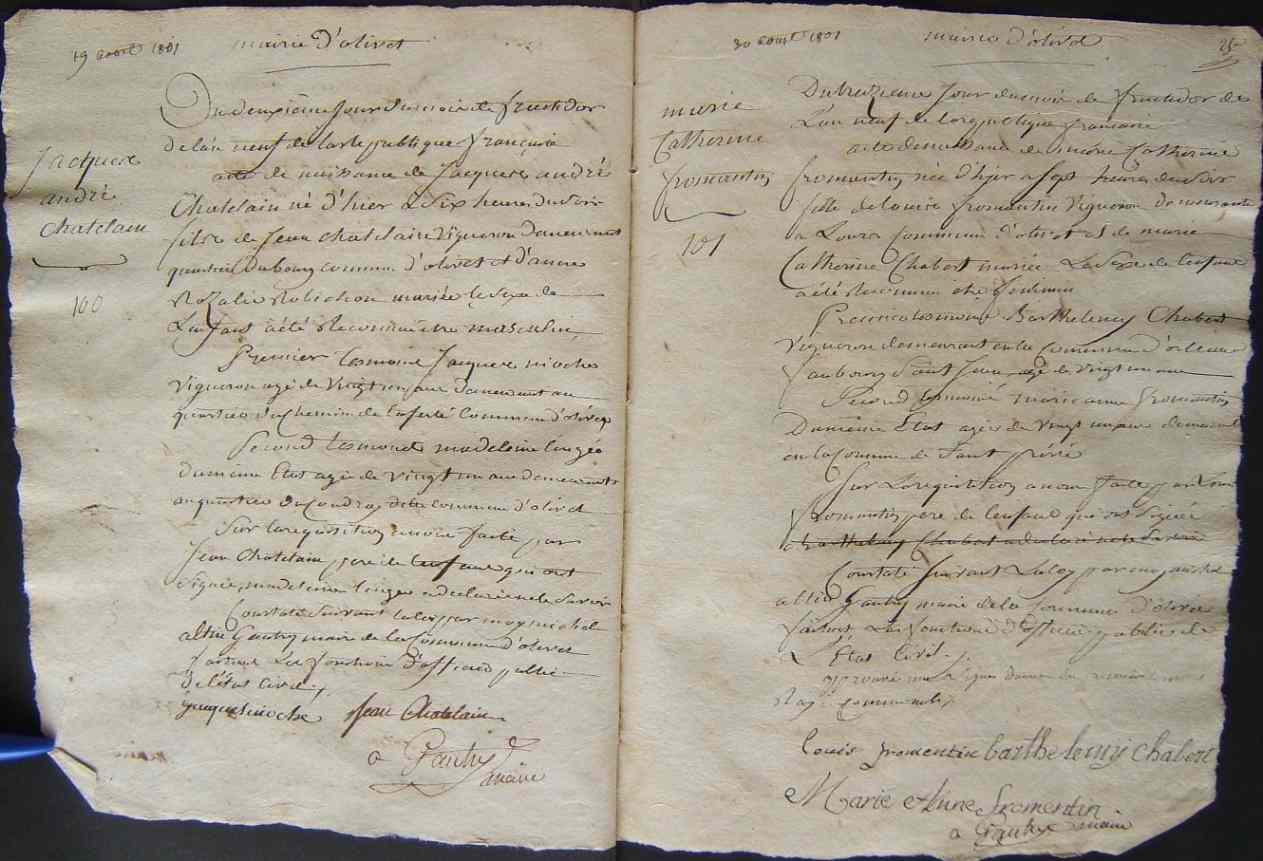 19 aout 1801
mairie d'olivet
Jacques
andré
Chatelain
100
Du deuxième Jour du mois de fructidor
de l'an neuf de la republique françoise
acte de naissance de Jacques andré
Chatelain né d'hier à Six heures du Soir
fils de Jean Chatelain Vigneron demeurant
quartier du bourg commune d'olivet et d'anne
Rozalie Robichon mariée le Sexe de
L'enfant a été Reconnu etre masculin
Premier tesmoint Jacques nioche
Vigneron agé de Vingt un ans demeurant au
quartier du Chemin de la ferté Commune d'olivet
Second tesmoint madeleine lingée
du meme Etat agée de Vingt un ans demeurante
au quartier du Coudray ditte commune d'olivet
Sur la requisition a nous faite par
Jean Chatelain pere de l'enfant qui ont
Signée, madeleine lingée a declaré ne le Savoir
Constaté Suivant la loi par moy michel
altin Gautry maire de la Commune d'olivet
faisant Les fonctions d'officier public
de l'état Civil
jacque nioche Jean Chatelain
a Gautry
maire
30 aout 1801
mairie d'olivet
marie
Catherine
fromentin
101
Du treizieme Jour du mois de fructidor de
L'an neuf de la republique francoise
acte de naissance de marie Catherine
fromentin née d'hier a Sept heures du Soir
fille de Louis fromentin Vigneron demeurante
a Commune d'olivet et de marie
Catherine Chabert mariée Le Sexe de l'enfant
a été Reconnu etre feminin
Premier tesmoint Barthelemy Chabert
Vigneron demeurant en la Commune d'orleans
faubourg Saint Jean agé de Vingt un ans
Second tesmoint marie anne fromentin
Du meme Etat agée de Vingt un ans demeurant
en la Commune de Saint privé
Sur La requisition a nous faite par Louis
fromentin pere de l'enfant qui ont Signée
Barthelemy Chabert a declaré ne le Savoir
Constaté Suivant La loy par moy michel
altin Gautry maire de la Commune d'olivet
faisant Les fonctions d'officier public de
L'Etat Civil
louis fromentin barthelemy Chabert
Marie Anne fromentin
a Gautry maire